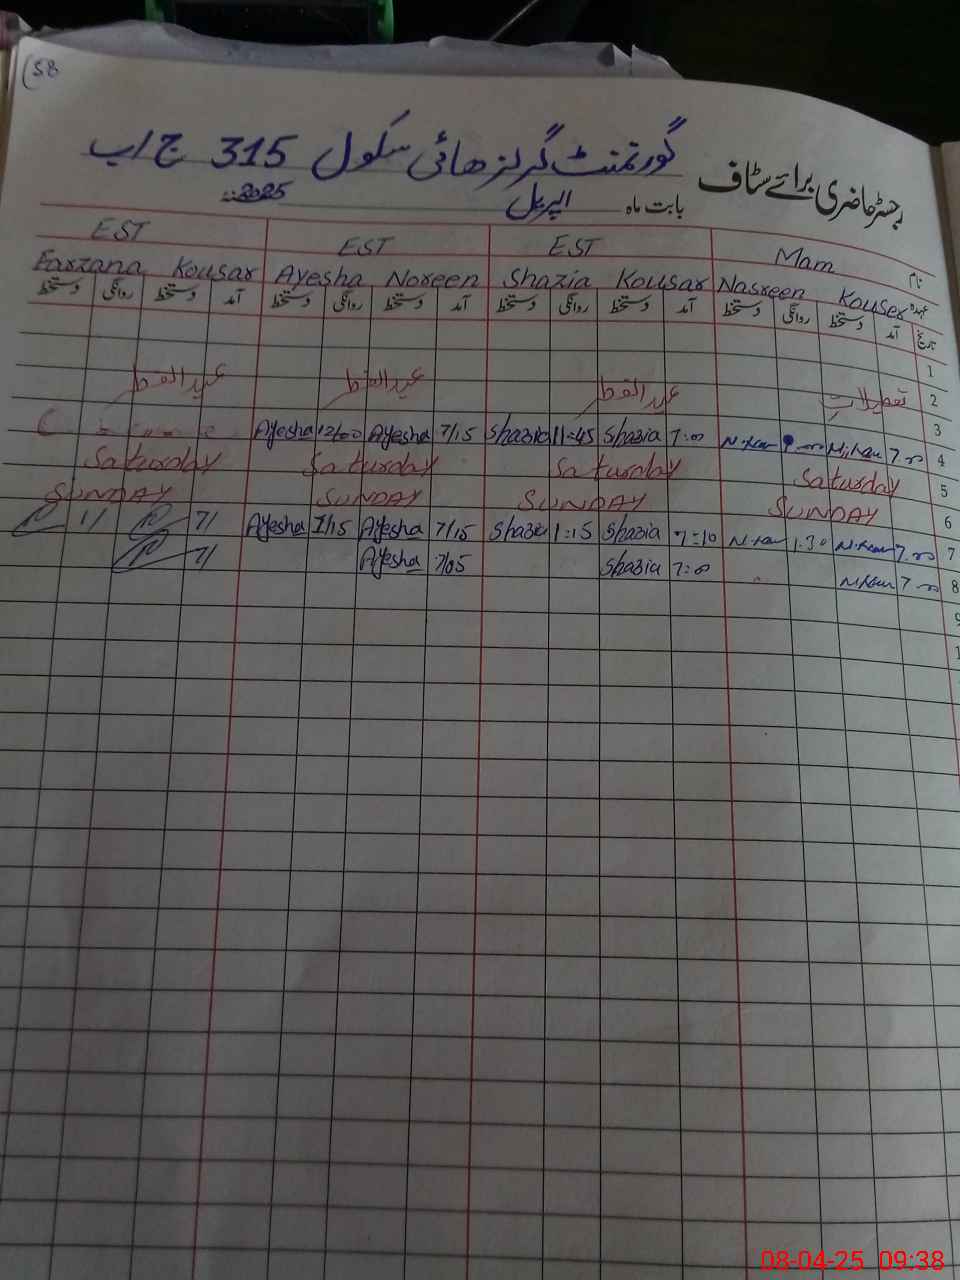 58
گورنمنٹ گرلز ھائی سکول 315 ج اب
رجسٹر حاضری برائے سٹاف
بابت ماہ اپریل 2025ء
EST EST EST Mam نام
Farzana Kousar Ayesha Noreen Shazia Kousar Nasreen Kouser عہدہ
دستخط روانگی دستخط آمد دستخط روانگی دستخط آمد دستخط روانگی دستخط آمد دستخط روانگی دستخط آمد تاریخ
1
عید الفطر عید الفطر عید الفطر تعطیلات 2
3
Ayesha 12/00 Ayesha 7/15 Shazia 11=45 Shazia 7:00 7:00 4
Saturday Saturday Saturday Saturday 5
SUNDAY SUNDAY SUNDAY SUNDAY 6
1/ 7/ Ayesha 1/15 Ayesha 7/15 Shazia 1:15 Shazia 7:10 1.30 7:00 7
7/ Ayesha 7/05 Shazia 7:00 7:00 8
9
08-04-25 09:38